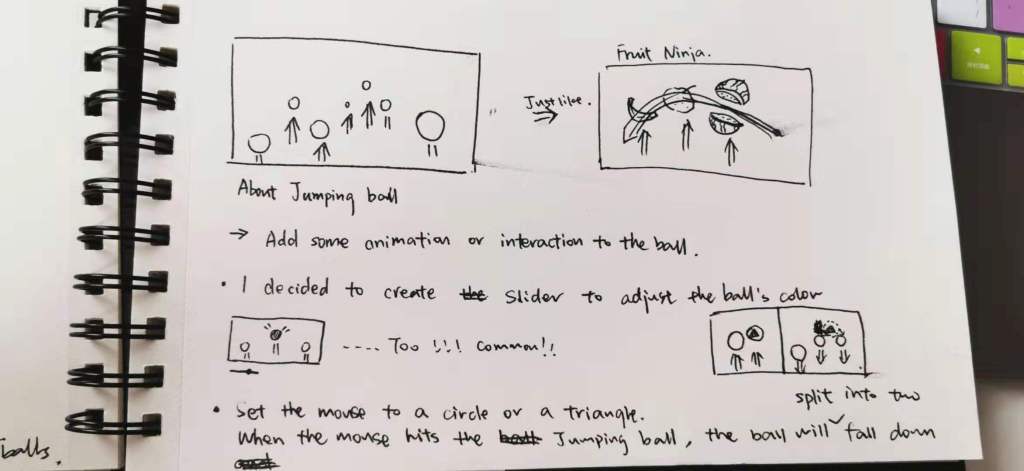 Fruit Ninja.
Just like.
About Jumping ball
→ Add some animation or interaction to the ball.
• I decided to create the Slider to adjust the ball's color
.... Too !!! common!!
split into two
• Set the mouse to a circle or a triangle.
When the mouse hits the ball Jumping ball, the ball will fall down
balls.